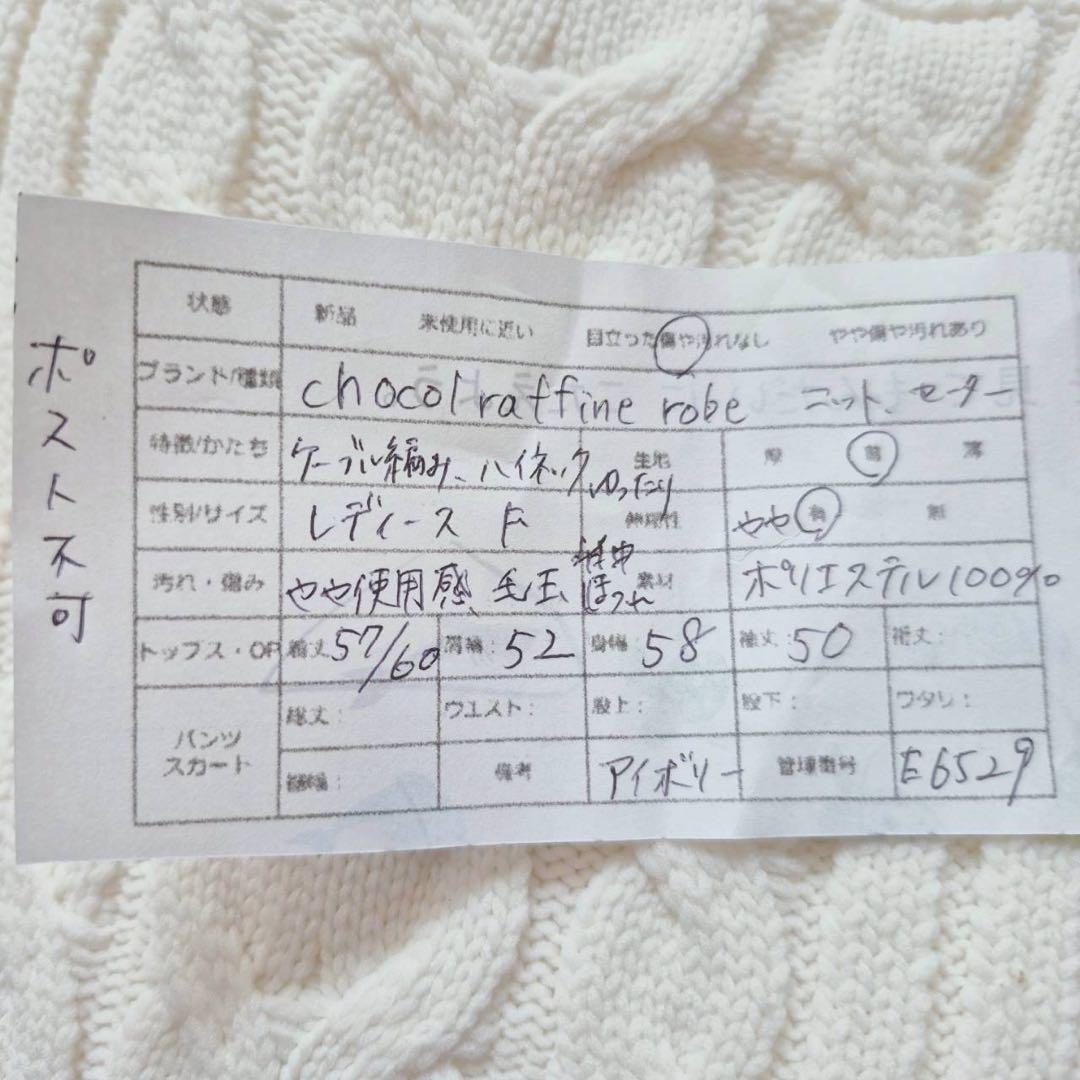 ポスト不可
状態 新品 未使用に近い 目立った傷や汚れなし やや傷や汚れあり
ブランド/種類 chocol raffine robe ニット、セーター
特徴/かたち ケーブル編み、ハイネック ゆったり 生地 厚 普 薄
性別/サイズ レディース F 伸縮性 やや 有 無
汚れ・傷み やや使用感、毛玉 ほつれ 素材 ポリエステル100%
トップス・OP 着丈 57/60 肩幅: 52 身幅: 58 袖丈: 50 裄丈:
パンツ スカート 総丈: ウエスト: 股上: 股下: ワタリ:
裾幅: 備考 アイボリー 管理番号 E6529